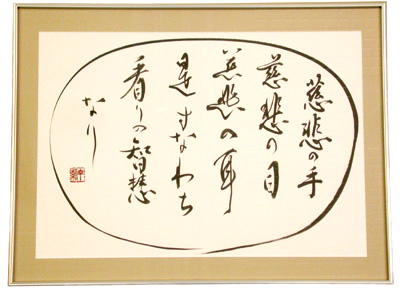 慈悲の手
慈悲の目
慈悲の耳
是すなわち
看りの智慧
なり